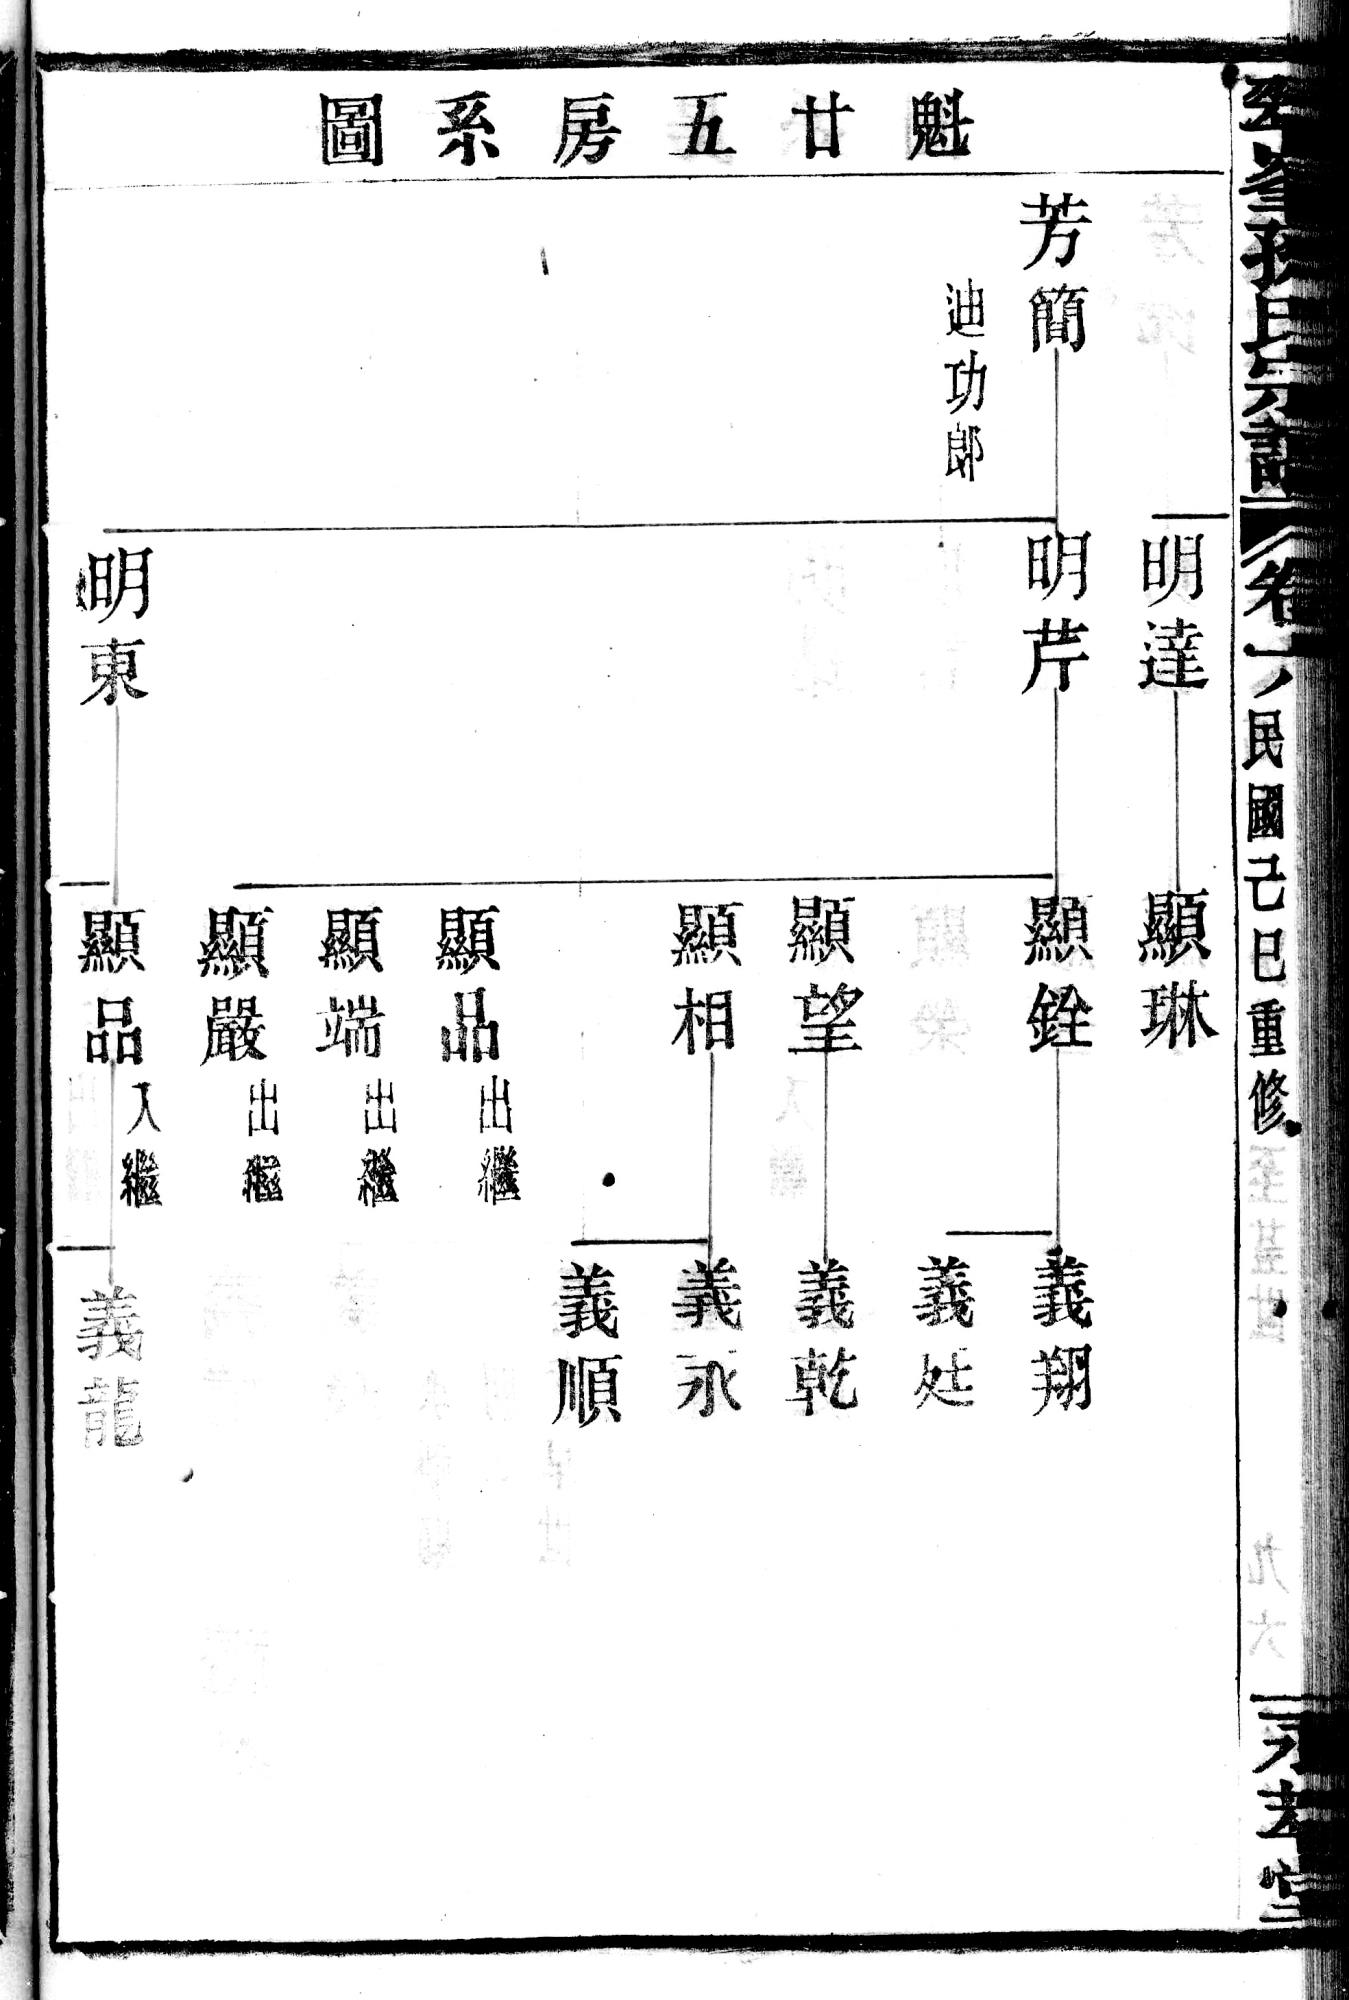 魁廿五房系圖
芳簡
迪功郎
明達
明芹
明東
顯琳
顯銓
顯望
顯相
顯品 出繼
顯端 出繼
顯嚴 出繼
顯品 入繼
義翔
義乾
義永
義順
義龍
民國己巳重修